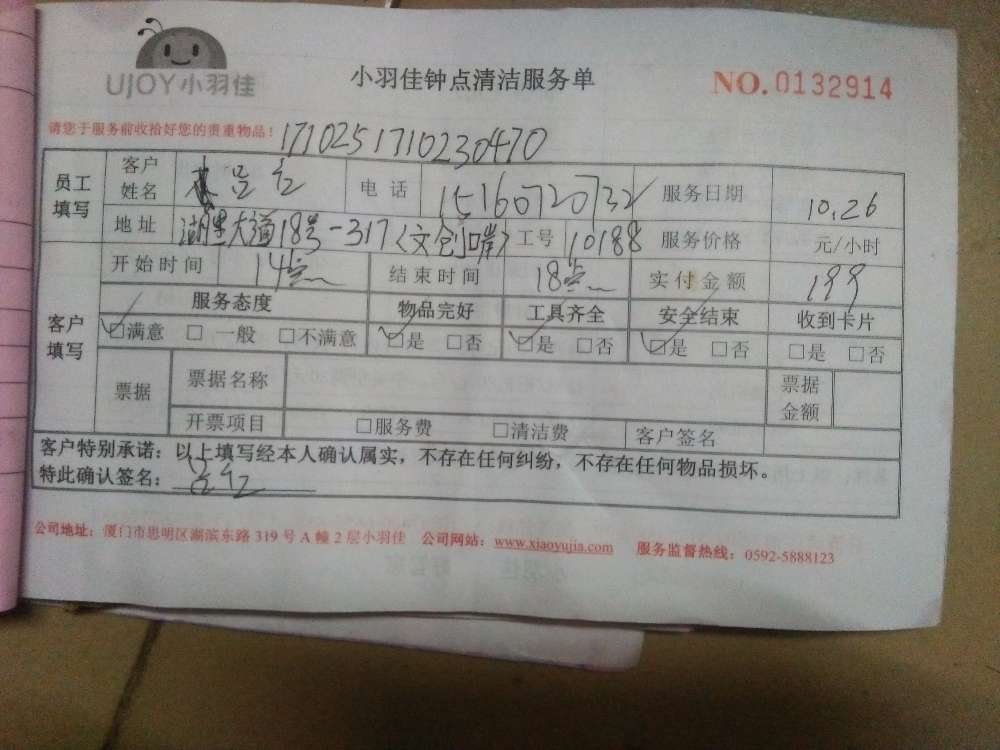 UJOY小羽佳
小羽佳钟点清洁服务单
NO.0132914
请您于服务前收拾好您的贵重物品！
1710251710230470
员工填写 客户姓名 电话 15160720732 服务日期 10.26
地址 湖里大道18号-317 工号 10188 服务价格 元/小时
客户填写 开始时间 14点 结束时间 18点 实付金额 199
服务态度 物品完好 工具齐全 安全结束 收到卡片
☑满意 □一般 □不满意 ☑是 □否 ☑是 □否 ☑是 □否 □是 □否
票据 票据名称 票据金额
开票项目 □服务费 □清洁费 客户签名
客户特别承诺：以上填写经本人确认属实，不存在任何纠纷，不存在任何物品损坏。
特此确认签名：
公司地址：厦门市思明区湖滨东路319号A幢2层小羽佳 公司网站：www.xiaoyujia.com 服务监督热线：0592-5888123